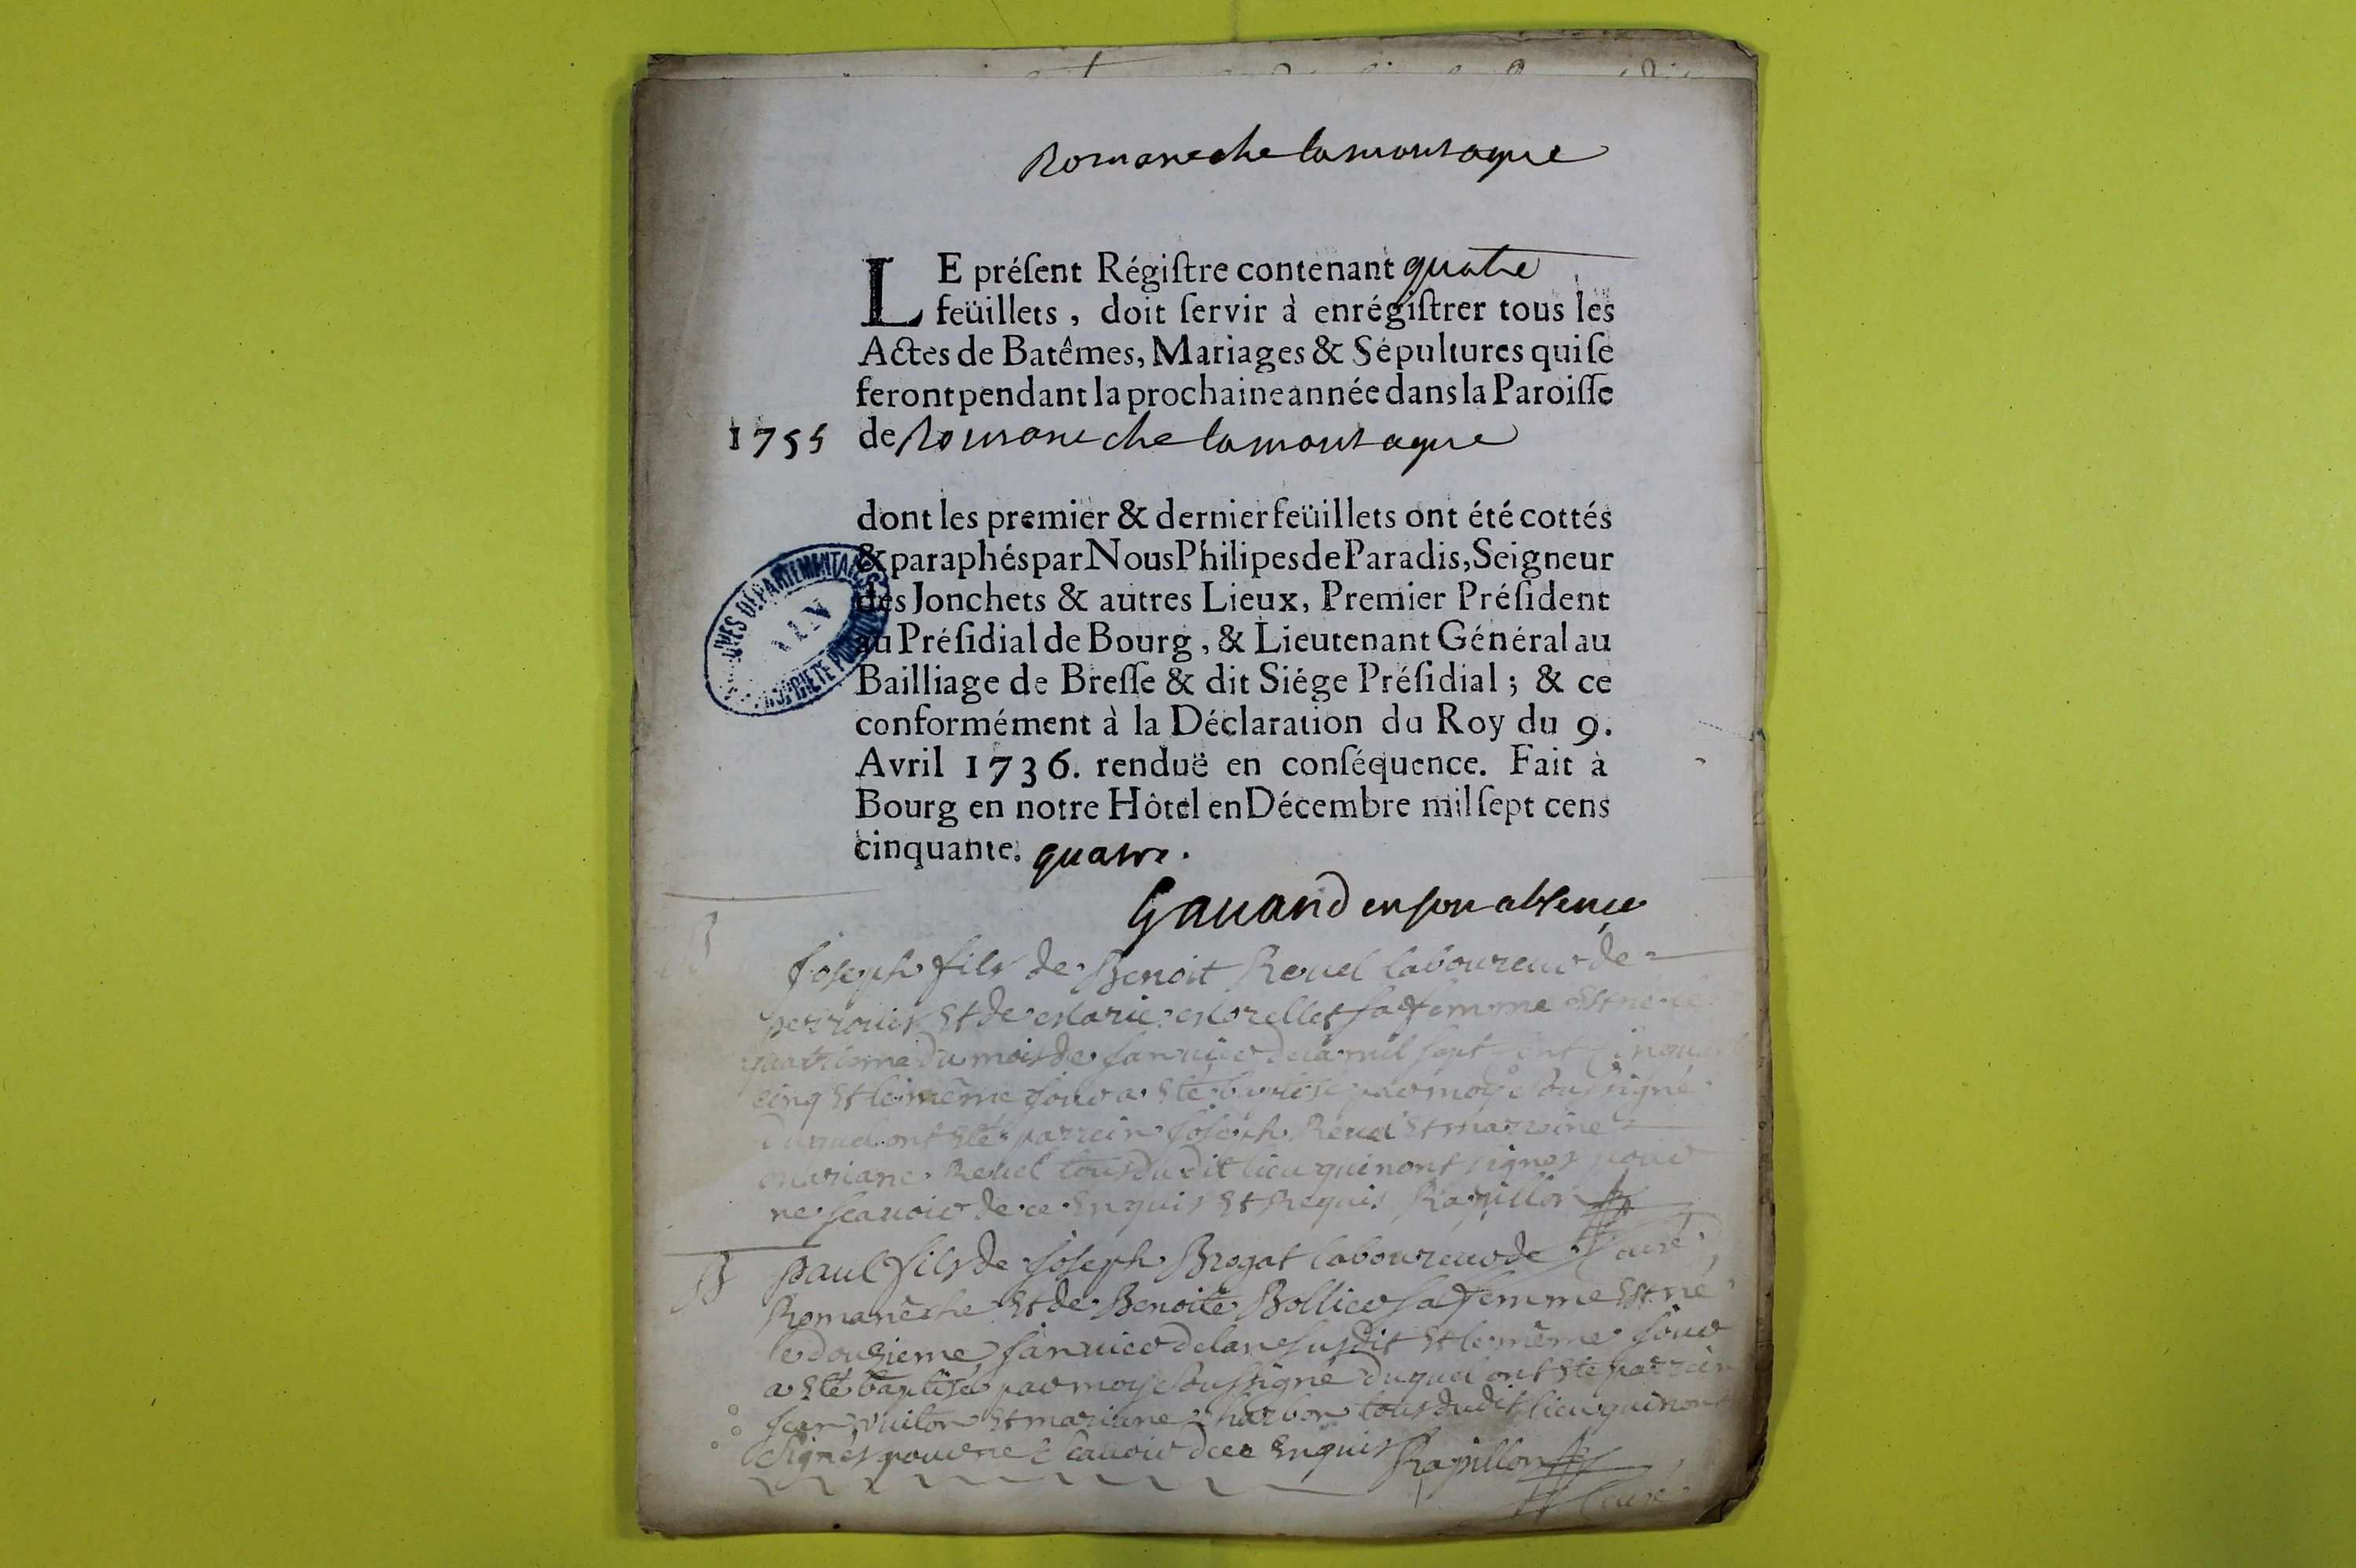 Romaneche lamontagne
LE préſent Régiſtre contenant quatre
feüillets, doit ſervir à enrégiſtrer tous les
Actes de Batêmes, Mariages & Sépultures qui ſe
feront pendant la prochaine année dans la Paroiſſe
1755 de Romaneche lamontagne
dont les premier & dernier feüillets ont été cottés
& paraphés par Nous Philipes de Paradis, Seigneur
des Jonchets & autres Lieux, Premier Préſident
au Préſidial de Bourg, & Lieutenant Général au
Bailliage de Breſſe & dit Siége Préſidial; & ce
conformément à la Déclaration du Roy du 9.
Avril 1736. renduë en conſéquence. Fait à
Bourg en notre Hôtel en Décembre mil ſept cens
cinquante. quatre.
Gauand en son absence
B
Joseph fils de Benoit Reuel laboureur de
Et de Marie Morellet sa femme Est né le
quatrieme du mois de Januier mil sept cent cinquante
cinq Et le même Jour a Eté batisé par moy Soussigné
duquel ont Eté parrein Joseph Reuel Et marreine
mariane Reuel tous dudit lieu qui nont signes pour
ne scauoir de ce Enquis Et Requis Rapillon
Curé
B Paul fils de Joseph Brogat laboureur de
Romanêche Et de Benoite Bollier sa femme Est né
le dousieme Januier de lan susdit Et le même Jour
a Eté baptisé par moy Soussigné duquel ont Eté parrein
Jean Et mariane tous dudit lieu qui nont
Signés pour ne Scauoir de ce Enquis Rapillon
Curé
ARCHIVES DÉPARTEMENTALES
AIN
PROPRIÉTÉ PUBLIQUE